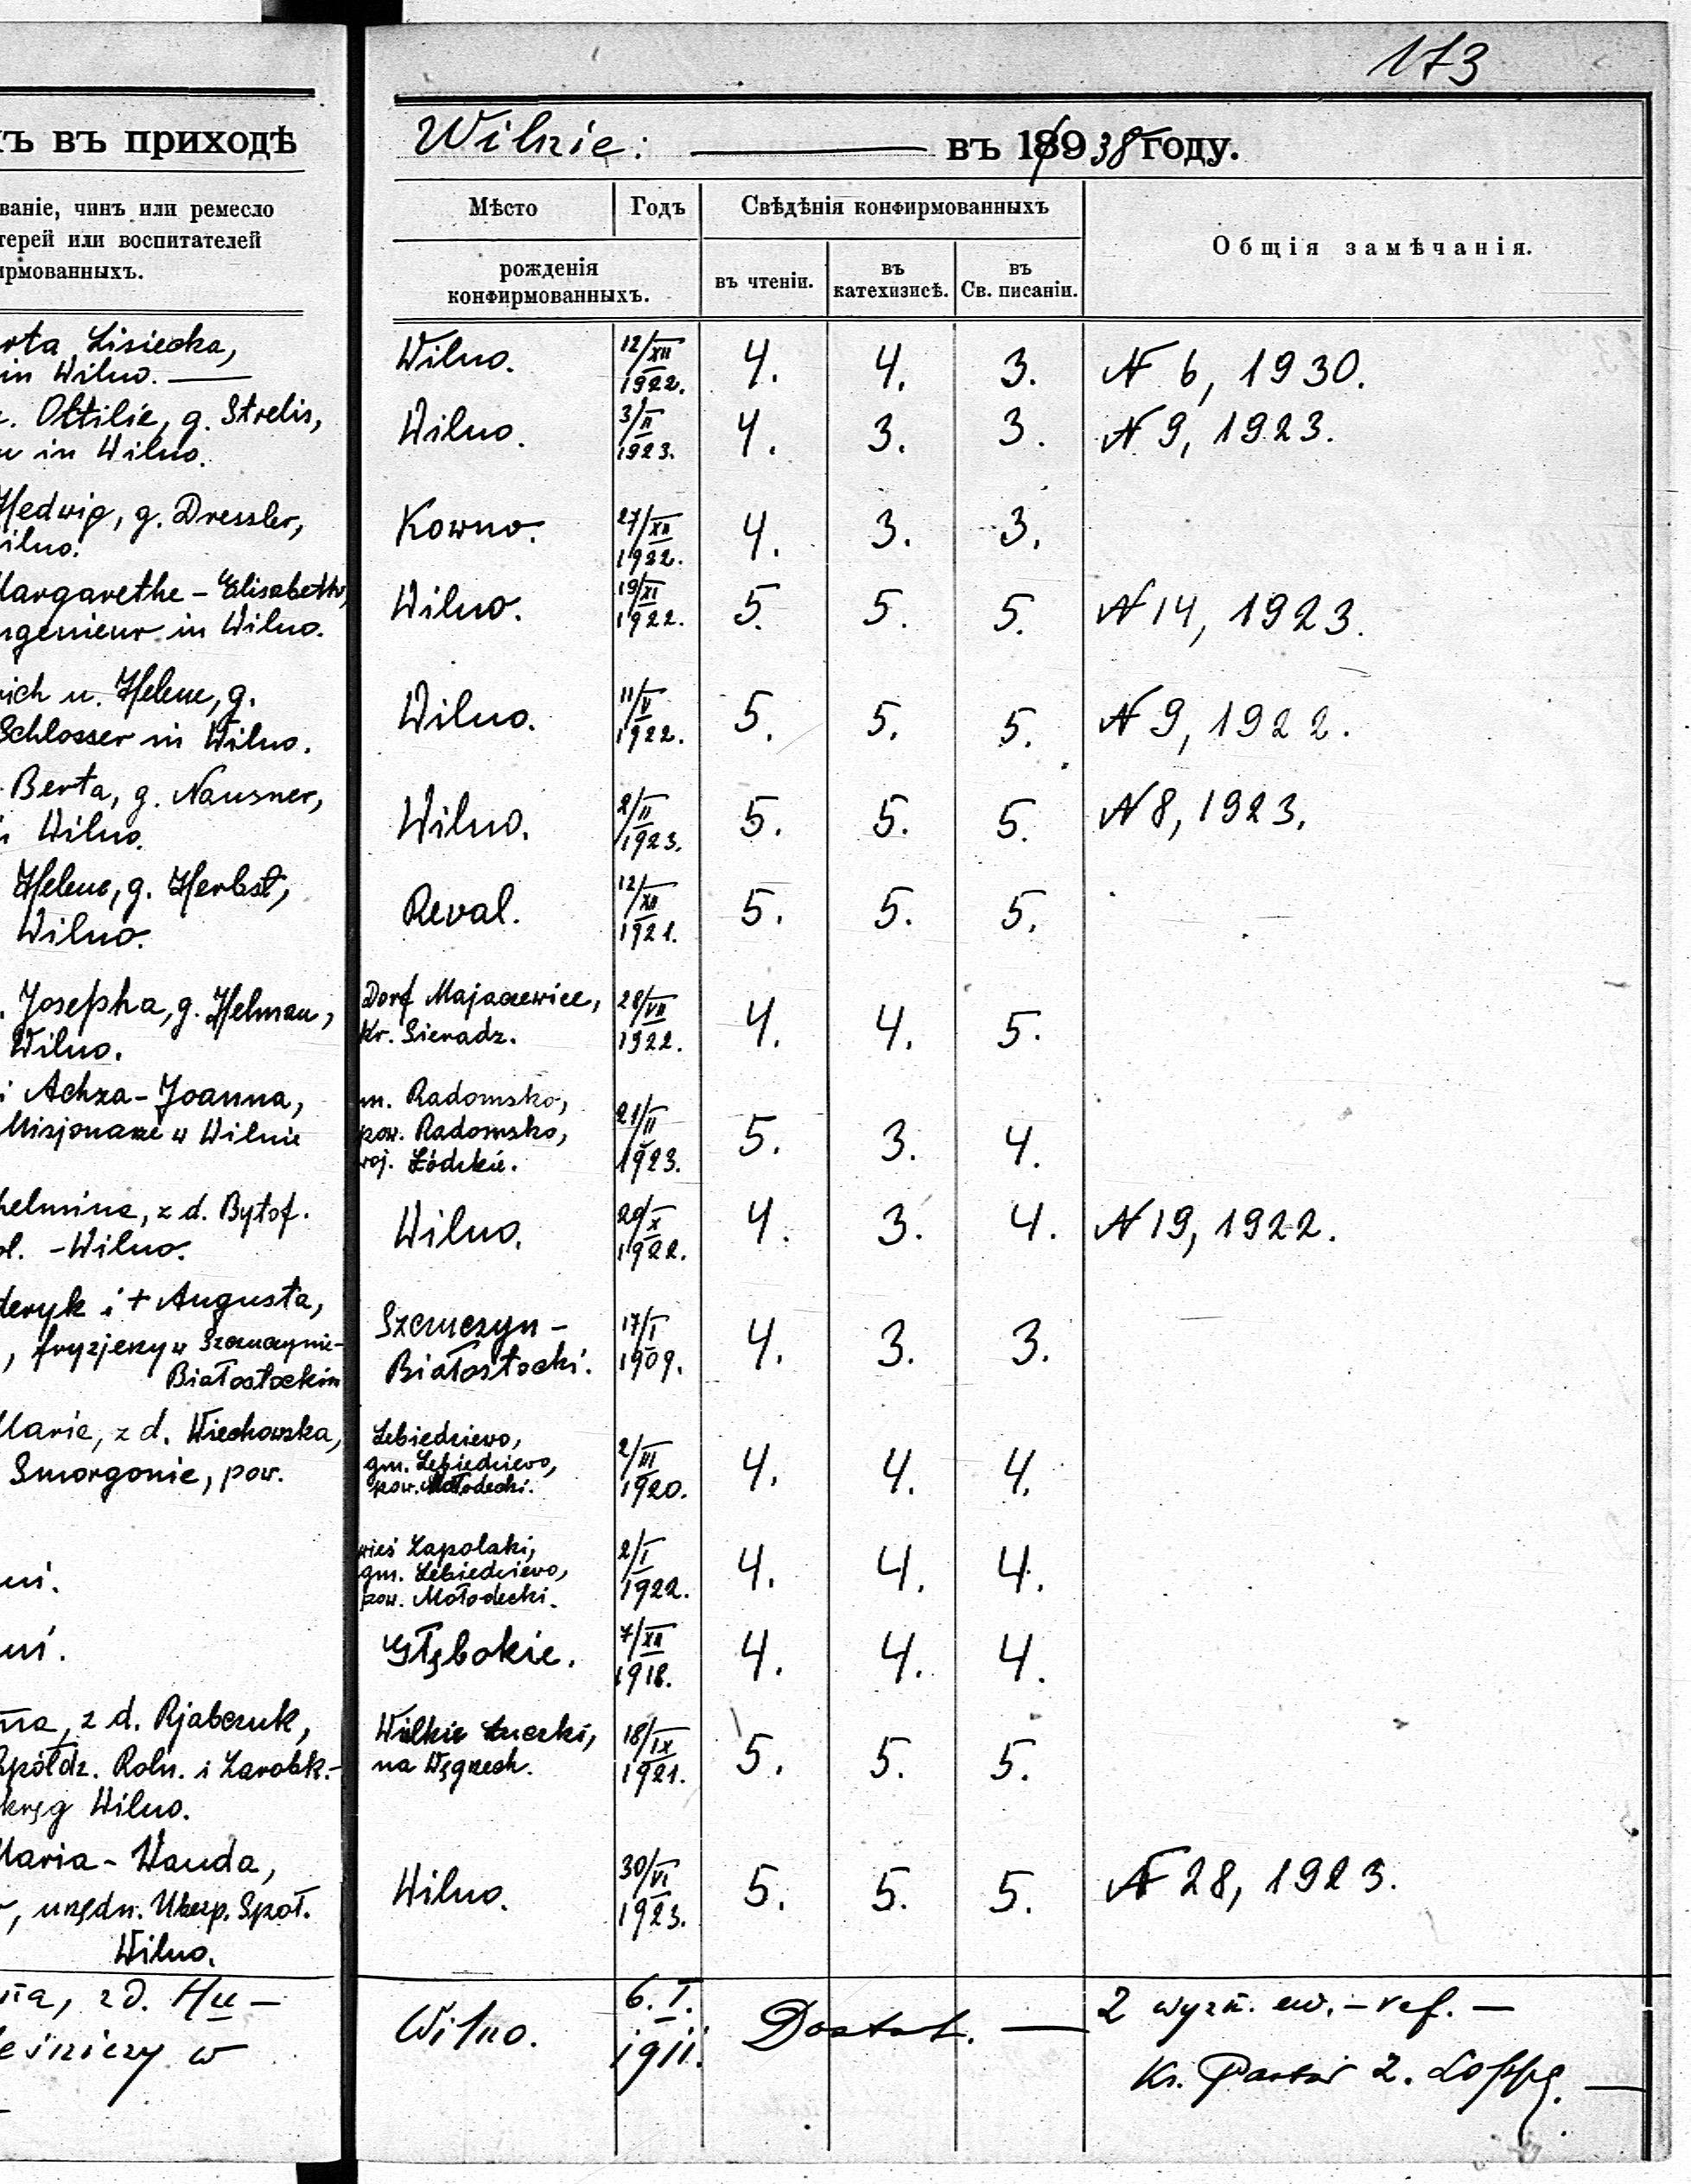 173
ъ въ приходѣ
Wilnie: въ 1893 38 году.
званіе, чинъ или ремесло
терей или воспитателей
ирмованныхъ.
Мѣсто Годъ Свѣдѣнія конфирмованныхъ Общія замѣчанія.
рожденія
конфирмованныхъ.
въ чтеніи. въ катехизисѣ. въ Св. писаніи.
rta Lisiecka,
in Wilno.
Wilno. 12/XII 1922. 4. 4. 3. N 6, 1930.
Ottilie, g. Strelis,
in Wilno.
Wilno. 3/II 1923. 4. 3. 3. N 9, 1923.
Hedwig, g. Dressler,
ilno.
Kowno. 27/XII 1922. 4. 3. 3.
Margarethe-Elisabeth,
ngenieur in Wilno.
Wilno. 19/XI 1922. 5. 5. 5. N 14, 1923.
rich u. Helene, g.
Schlosser in Wilno.
Wilno. 11/V 1922. 5. 5. 5. N 9, 1922.
Berta, g. Nausner,
Wilno.
Wilno. 2/II 1923. 5. 5. 5. N 8, 1923.
Helene, g. Herbst,
Wilno.
Reval. 12/XII 1921. 5. 5. 5.
Josepha, g. Helman,
Wilno.
Dorf Majaczewice,
Kr. Sieradz.
28/VII 1922. 4. 4. 5.
i Achza-Joanna,
Misjonarze w Wilnie
m. Radomsko,
pow. Radomsko,
woj. Łódzkie.
21/II 1923. 5. 3. 4.
helmine, z d. Bytof.
ol. - Wilno.
Wilno. 20/X 1922. 4. 3. 4. N 19, 1922.
deryk i + Augusta,
, fryzjerzy w Szczuczynie-
Białostockim
Szczuczyn-
Białostocki.
17/I 1909. 4. 3. 3.
Marie, z d. Wiechowska,
Smorgonie, pow.
Lebiedziewo,
gm. Lebiedziewo,
pow. Mołodecki.
2/III 1920. 4. 4. 4.
wieś Zapolaki,
gm. Lebiedziewo,
pow. Mołodecki.
2/I 1922. 4. 4. 4.
Głębokie. 7/XII 1918. 4. 4. 4.
na, z d. Rjabczuk,
Spółdz. Roln. i Zarobk.-
kręg Wilno.
Wilkie Łuczki,
na Węgrzech.
18/IX 1921. 5. 5. 5.
Maria-Wanda,
, urzędn. Ubezp. Społ.
Wilno.
Wilno. 30/VI 1923. 5. 5. 5. N 28, 1923.
na, z d. Hu-
leśniczy w
Wilno. 6.I. 1911. Dostat. Z wyzn. ew.-ref.
Ks. Pastor Z. Loppe.